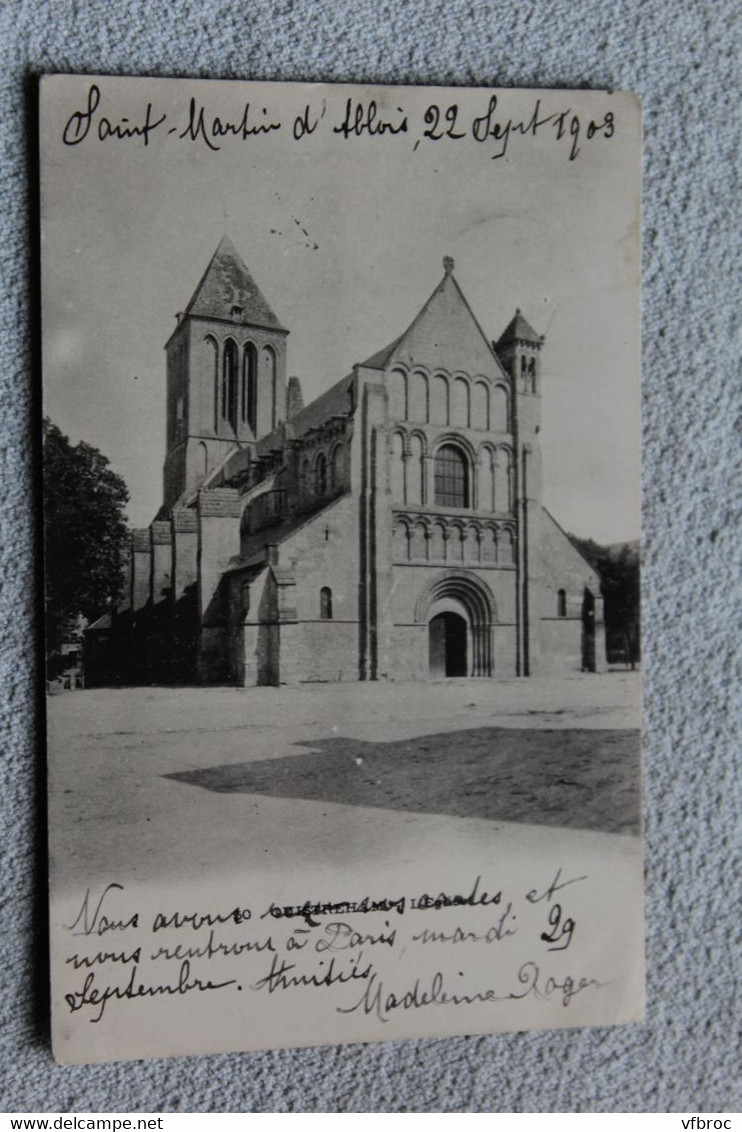 Saint-Martin d'Ablois, 22 Sept 1903
10 OUISTREHAM. L'Eglise
Nous avons reçu vos cartes, et
nous rentrons à Paris, mardi 29
Septembre. Amitiés,
Madeleine Roger
vfbroc